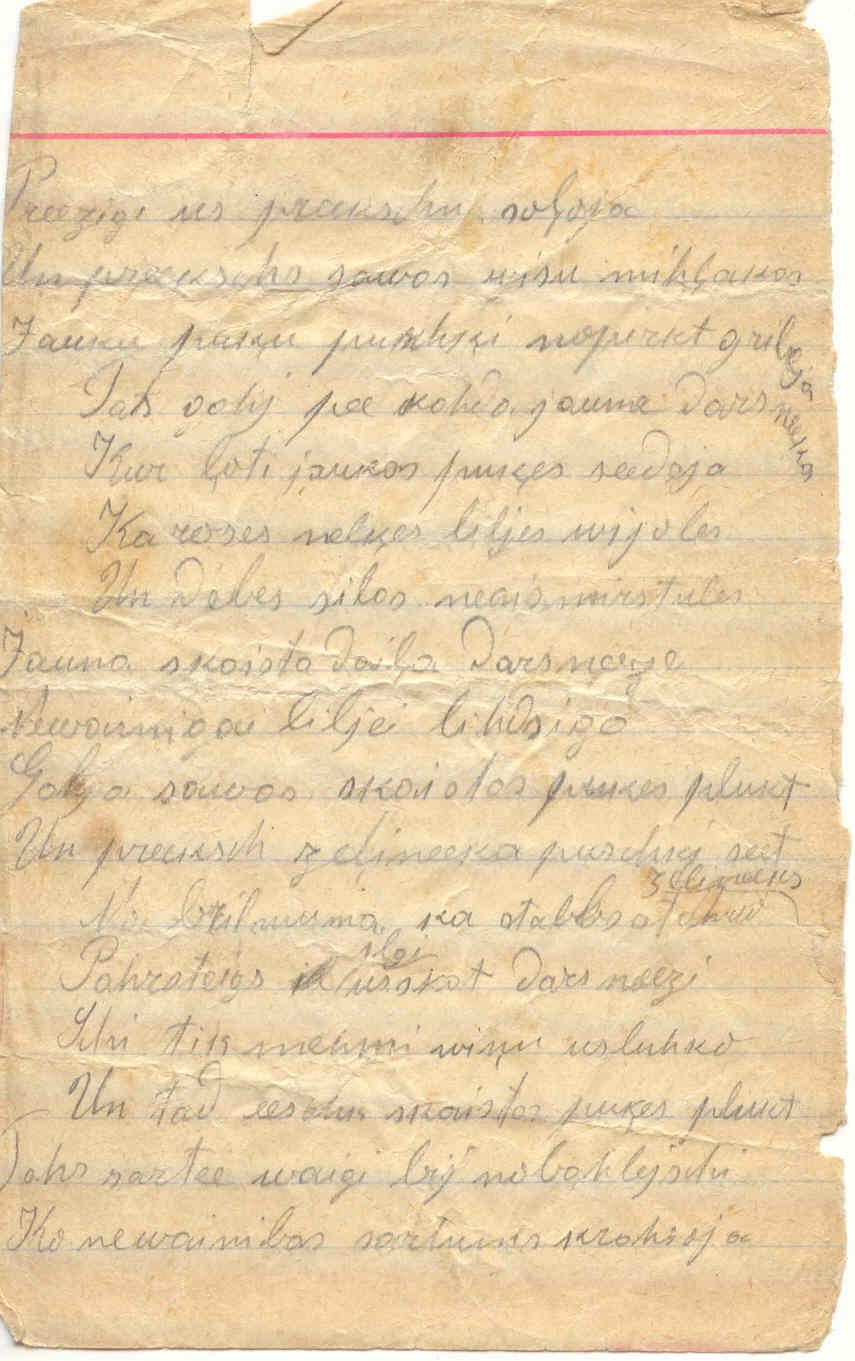 Preezigi us preekschu soļoja
Un preeksch sawas wisu mihļakas
Jauku puķu puschķi nopirkt gribeja
Tas gahj pee kahda jauna darsneeka
Kur ļoti jaukas puķes seedeja
Ka roses nelķes liljes wijoles
Un debes silas neaismirstules
Jauna skaista daiļa darsneeze
Newainigai liljei lihdsiga
Gahja sawas skaistas puķes pluhkt
Un preeksch zeļineeka puschķi seet
No brihnuma ka stabbs zeļineeks
Pahrsteigs ilgi usskat darsneezi
Schi tik mehmi wiņu usluhko
Un tad eeschu skaistas puķes pluhkt
Tahs sartee waigi bij nobahlejschi
Ko newainibas sartums krahsoja